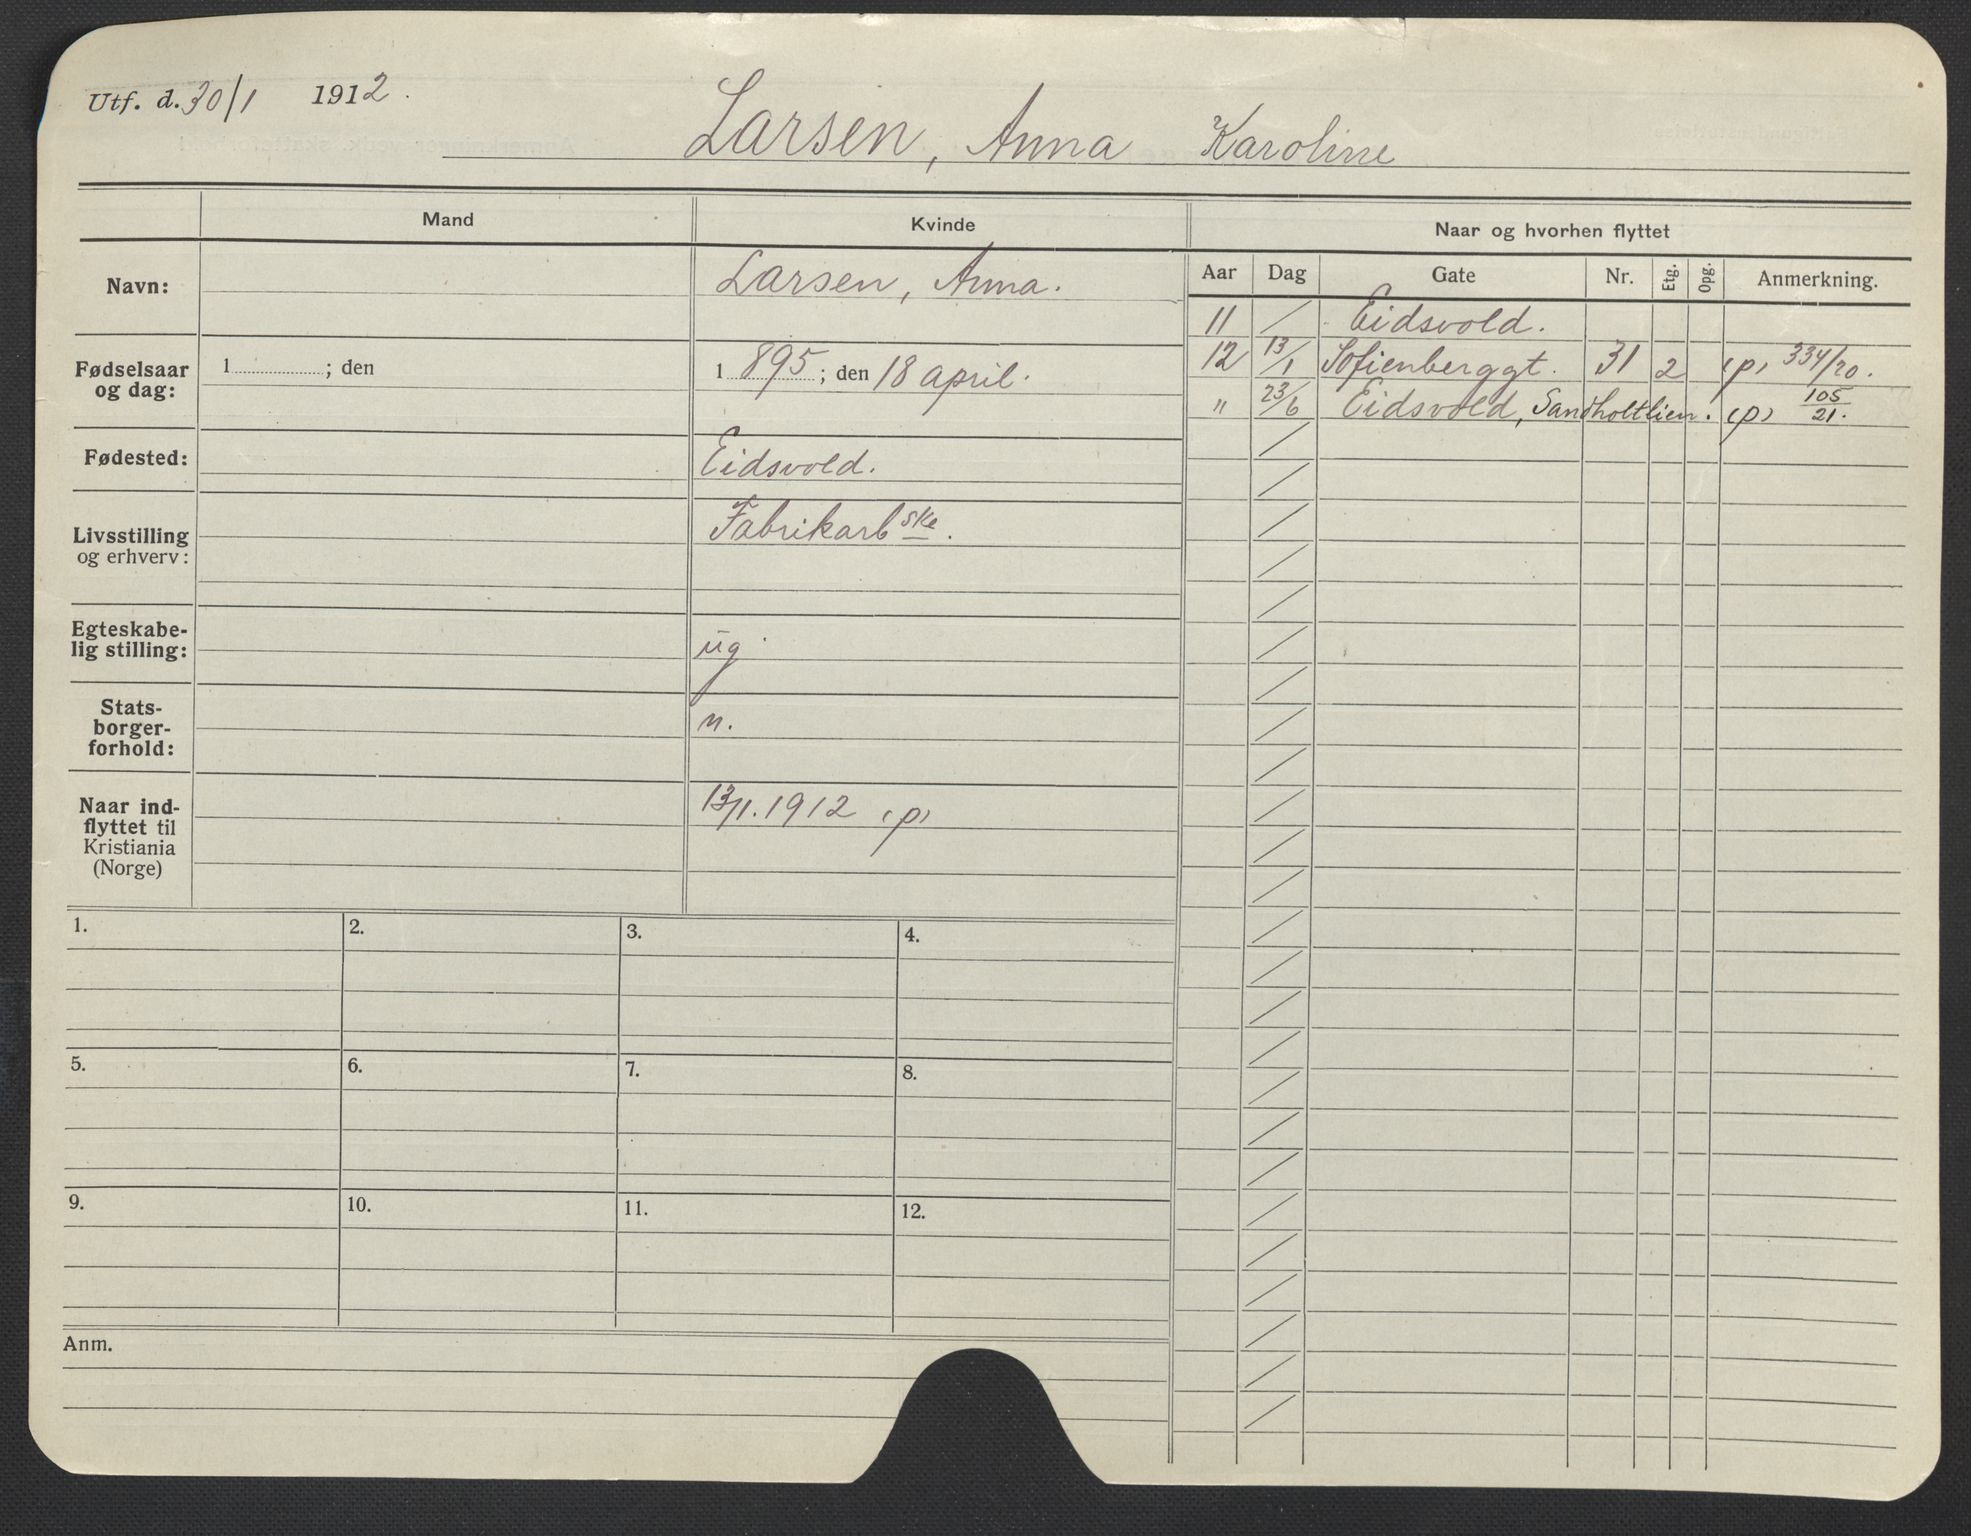 Utf. d. 30/1 1912.
Larsen, Anna Karoline
Mand
Kvinde
Naar og hvorhen flyttet
Aar Dag Gate Nr. Etg. Opg. Anmerkning.
Navn: Larsen, Anna.
Fødselsaar og dag: 1 ; den 1 895 ; den 18 april.
Fødested: Eidsvold.
Livsstilling og erhverv: Fabrikarbske.
Egteskabe-
lig stilling: ug
Stats-
borger-
forhold: n.
Naar ind-
flyttet til
Kristiania
(Norge) 13/1. 1912 (p)
11 / Eidsvold.
12 13/1 Sofienberggt. 31 2 (p) 334/20.
" 23/6 Eidsvold, Sandholtlien. (p) 105/21.
1. 2. 3. 4.
5. 6. 7. 8.
9. 10. 11. 12.
Anm.